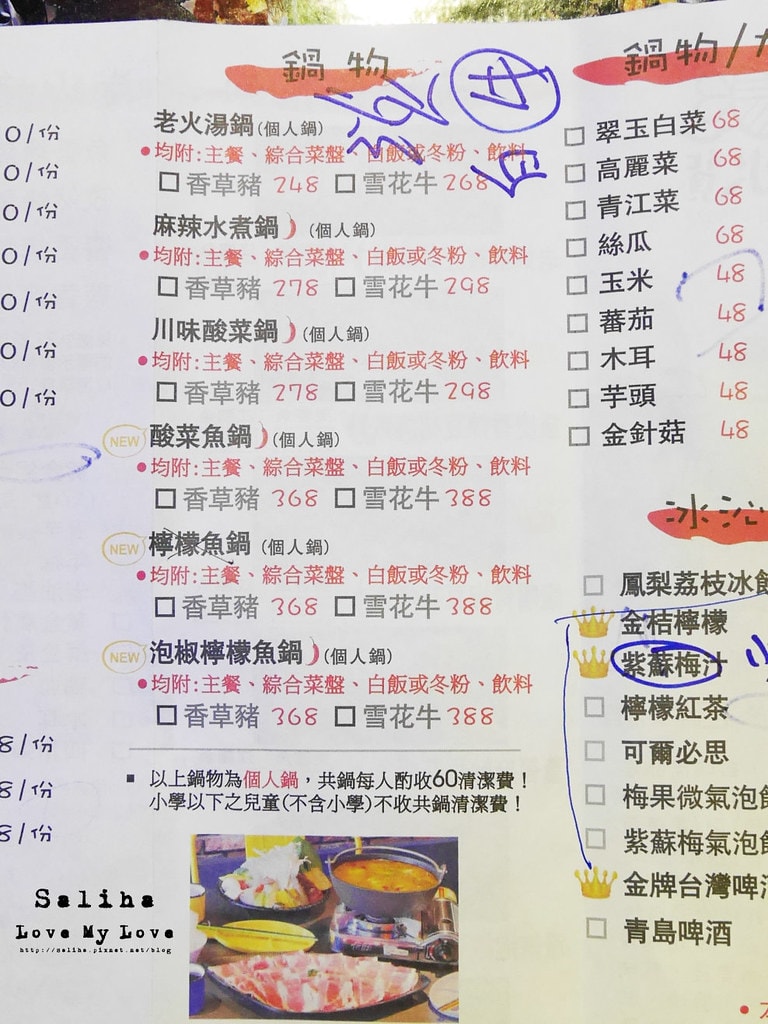 0/份
0/份
0/份
0/份
0/份
0/份
0/份
8/份
8/份
8/份
鍋物
老火湯鍋(個人鍋)
•均附:主餐、綜合菜盤、白飯或冬粉、飲料
□香草豬 248 □雪花牛 268
麻辣水煮鍋 (個人鍋)
•均附:主餐、綜合菜盤、白飯或冬粉、飲料
□香草豬 278 □雪花牛 298
川味酸菜鍋 (個人鍋)
•均附:主餐、綜合菜盤、白飯或冬粉、飲料
□香草豬 278 □雪花牛 298
NEW 酸菜魚鍋 (個人鍋)
•均附:主餐、綜合菜盤、白飯或冬粉、飲料
□香草豬 368 □雪花牛 388
NEW 檸檬魚鍋 (個人鍋)
•均附:主餐、綜合菜盤、白飯或冬粉、飲料
□香草豬 368 □雪花牛 388
NEW 泡椒檸檬魚鍋 (個人鍋)
•均附:主餐、綜合菜盤、白飯或冬粉、飲料
□香草豬 368 □雪花牛 388
▪ 以上鍋物為個人鍋，共鍋每人酌收60清潔費！
小學以下之兒童(不含小學)不收共鍋清潔費！
鍋物/
□翠玉白菜 68
□高麗菜 68
□青江菜 68
□絲瓜 68
□玉米 48
□蕃茄 48
□木耳 48
□芋頭 48
□金針菇 48
冰沁
□鳳梨荔枝冰飲
金桔檸檬
紫蘇梅汁
□檸檬紅茶
□可爾必思
□梅果微氣泡飲
□紫蘇梅氣泡飲
金牌台灣啤酒
□青島啤酒
Saliha
Love My Love
http://saliha.pixnet.net/blog